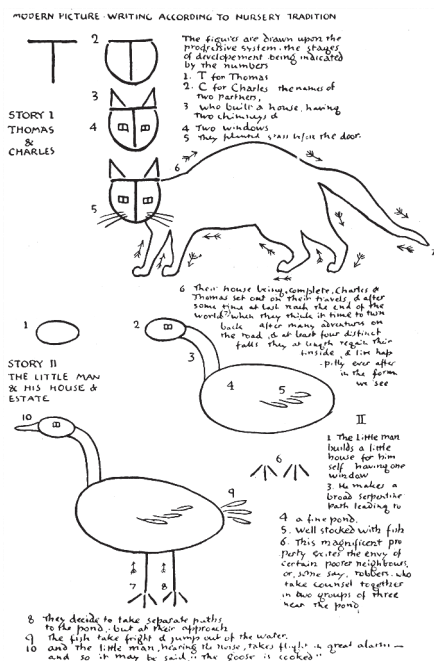 MODERN PICTURE-WRITING ACCORDING TO NURSERY TRADITION
2
The figures are drawn upon the
progressive system. the stages
of developement being indicated
by the numbers
1. T for Thomas
2. C for Charles the names of
two partners,
3 who built a house, having
two chimneys &
4 Two windows
5 They planted grass before the door.
STORY I
THOMAS
&
CHARLES
3
4
5
6
7
6 Their house being complete, Charles &
Thomas set out on their travels, & after
some time at last reach the end of the
world 7) when they think it time to turn
back after many adventures on
the road, & at least four distinct
falls they at length regain their
inside, & live hap
pily ever after
in the form
we see
1
2
3
4
5
STORY II
THE LITTLE MAN
& HIS HOUSE &
ESTATE
II
1 The little man
builds a little
house for him
self having one
window
3. He makes a
broad serpentine
path leading to
4 a fine pond.
5. Well stocked with fish
6. This magnificent pro
perty excites the envy of
certain poorer neighbours,
or, some say, robbers. who
take counsel together
in two groups of three
near the pond,
6
10
9
7
8
8 They decide to take separate paths
to the pond. but at their approach
9 The fish take fright & jump out of the water.
10 and the little man, hearing the noise, takes flight in great alarm —
and so it may be said "The goose is cooked"